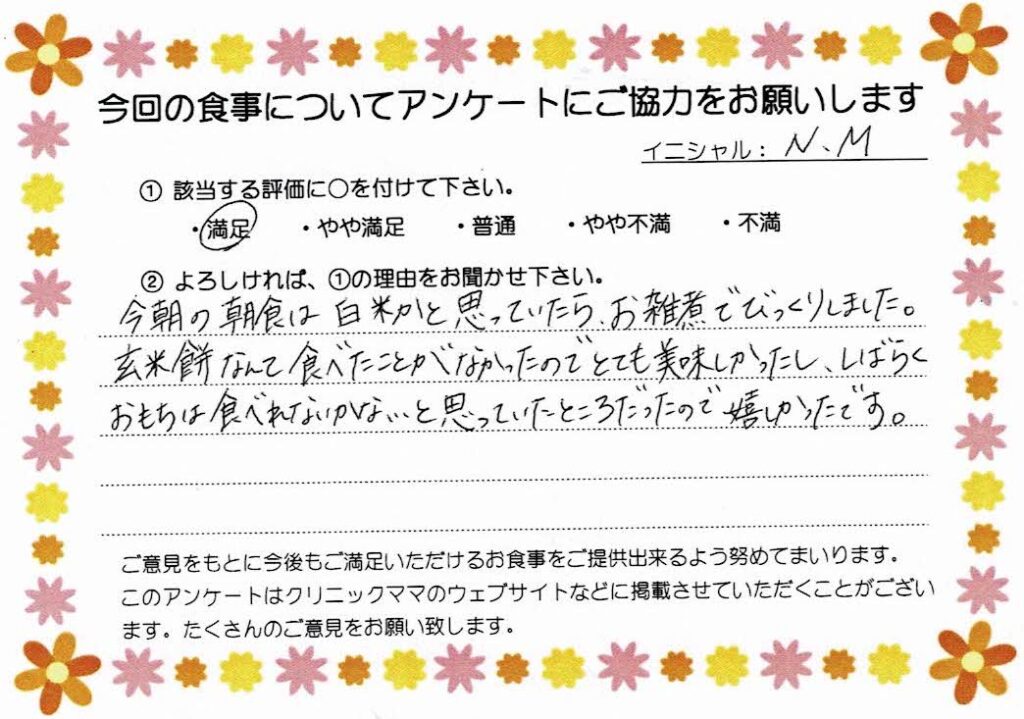 今回の食事についてアンケートにご協力をお願いします
イニシャル： N.M
① 該当する評価に○を付けて下さい。
・満足 ・やや満足 ・普通 ・やや不満 ・不満
② よろしければ、①の理由をお聞かせ下さい。
今朝の朝食は白米かと思っていたら、お雑煮でびっくりしました。
玄米餅なんて食べたことがなかったのでとても美味しかったし、しばらく
おもちは食べれないかないと思っていたところだったので嬉しかったです。
ご意見をもとに今後もご満足いただけるお食事をご提供出来るよう努めてまいります。
このアンケートはクリニックママのウェブサイトなどに掲載させていただくことがござい
ます。たくさんのご意見をお願い致します。